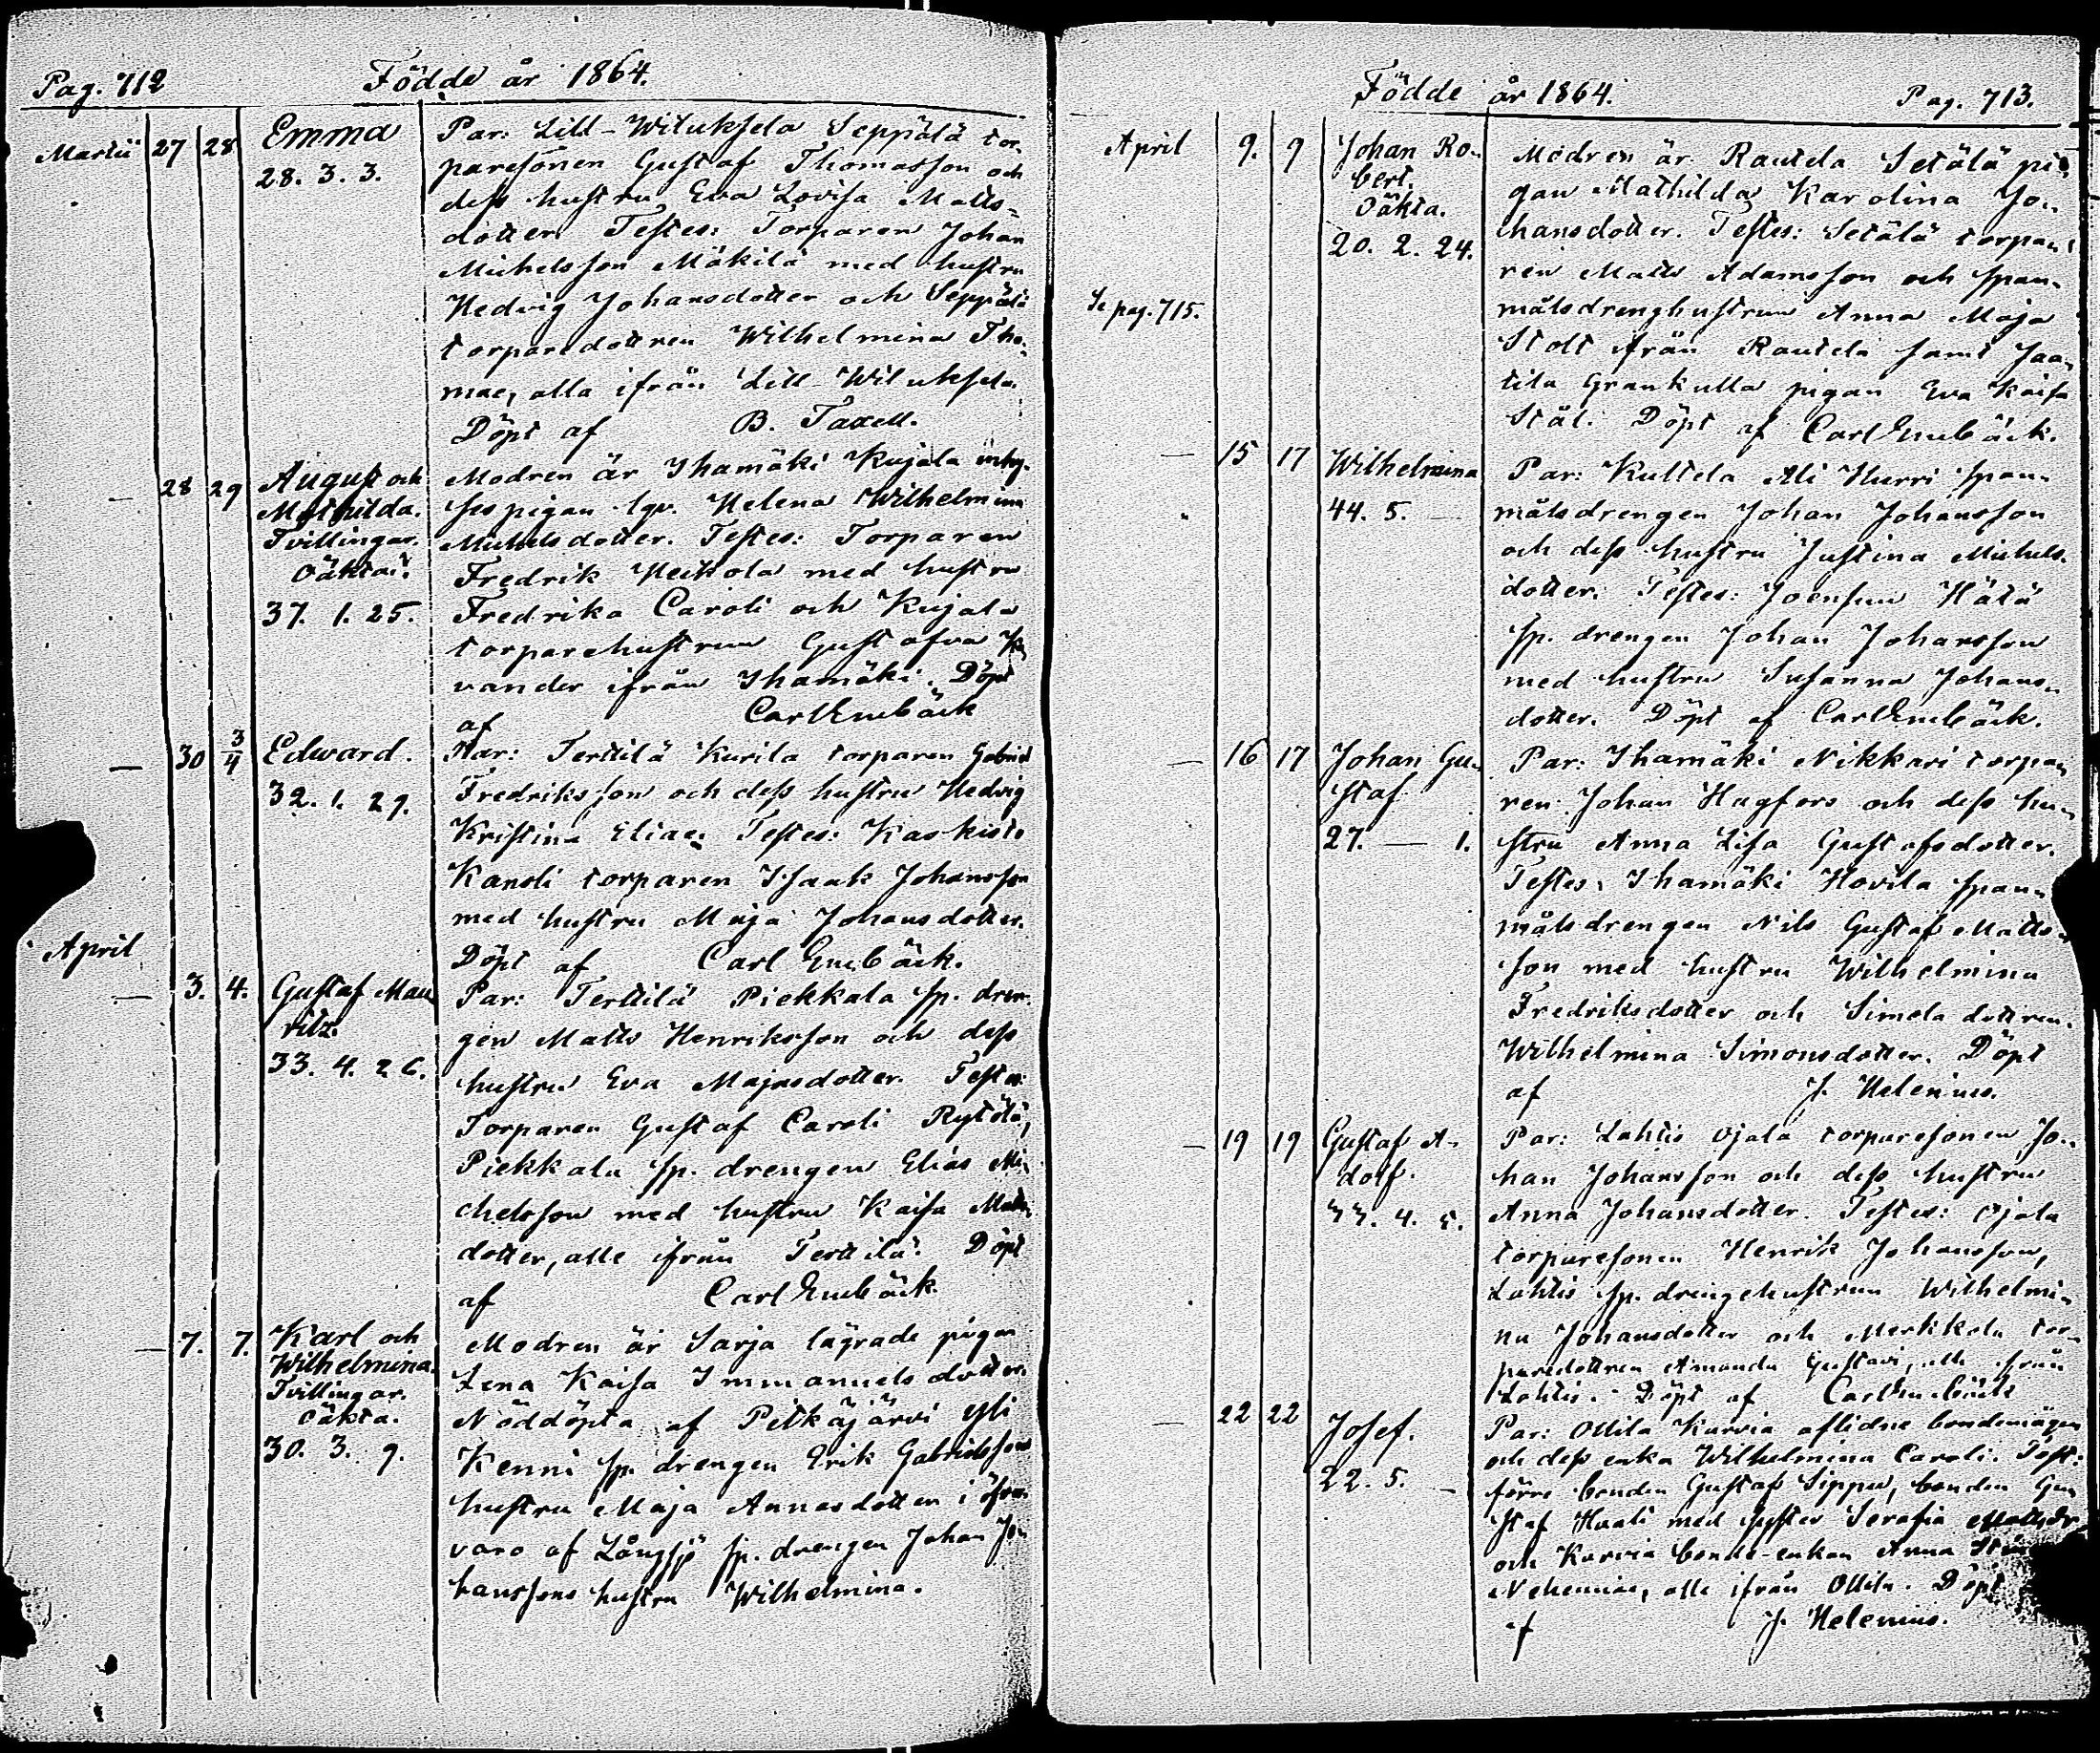 Pag. 712 Födde år 1864.
Martii 27 28 Emma
28. 3. 3.
Par: Lill-Wiluksela Seppälä tor-
paresonen Gustaf Thomasson och
dess hustru Eva Lovisa Matts-
dotter. Testes: Torparen Johan
Michelsson Mäkilä med hustru
Hedvig Johansdotter och Seppälä
torparedottren Wilhelmina Tho-
mae, alla ifrån Lill-Wiluksela.
Döpt af B. Taxell.
— 28 29 August och
Mathilda.
Tvillingar.
oäkta.
37. 1. 25.
Modren är Ihamäki Kujala inhy-
ses pigan lgv. Helena Wilhelmina
Michelsdotter. Testes: Torparen
Fredrik Heikola med hustru
Fredrika Caroli och Kujala
torparehustrun Gustafva
vander ifrån Ihamäki. Döpt
af Carl Enebäck
— 30 3/4 Edward.
32. 1. 29.
Par: Terttilä Kurila torparen Gabriel
Fredriksson och dess hustru Hedvig
Kristina Eliae. Testes: Kaskisto
Kanoli torparen Isaak Johansson
med hustru Maja Johansdotter.
Döpt af Carl Enebäck.
April
— 3. 4. Gustaf Mau-
ritz.
33. 4. 26.
Par: Terttilä Piekkala sp. dren-
gen Matts Henriksson och dess
hustru Eva Majasdotter. Testes:
Torparen Gustaf Caroli Rytölä,
Piekkala sp. drengen Elias Mi-
chelsson med hustru Kaisa Matts-
dotter, alle ifrån Terttilä. Döpt
af Carl Enebäck.
— 7. 7. Karl och
Wilhelmina.
Tvillingar.
oäkta.
30. 3. 9.
Modren är Sarja lägrade pigan
Lena Kaisa Immanuelsdotter.
Nöddöpta af Pitkäjärvi Yli
Kenni sp. drengen Erik Gabrielssons
hustru Maja Annasdotter i öfver-
varo af Långsjö sp. drengen Johan Jo-
hanssons hustru Wilhelmina.
Födde år 1864. Pag. 713.
April 9. 9 Johan Ro-
bert.
oäkta.
20. 2. 24.
Se pag. 715.
Modren är Rautela Setälä pi-
gan Mathilda Karolina Jo-
hansdotter. Testes: Setälä torpa-
ren Matts Adamsson och span-
målsdrenghustrun Anna Maja
Stolt ifrån Rautela samt Jaa-
tila Grankulla pigan Eva Kaisa
Stål. Döpt af Carl Enebäck.
— 15 17 Wilhelmina
44. 5. —
Par: Kultela Ali Hurri span-
målsdrengen Johan Johansson
och dess hustru Justina Michels-
dotter. Testes: Joensuu Hätä
sp. drengen Johan Johansson
med hustru Susanna Johans-
dotter. Döpt af Carl Enebäck.
— 16 17 Johan Gu-
staf
27. — 1.
Par: Ihamäki Nikkari torpa-
ren Johan Hagfors och dess hu-
stru Anna Lisa Gustafsdotter.
Testes: Ihamäki Hovila span-
målsdrengen Nils Gustaf Matts-
son med hustru Wilhelmina
Fredriksdotter och Simola dottren
Wilhelmina Simonsdotter. Döpt
af J. Helenius.
— 19 19 Gustaf A-
dolf.
33. 4. 5.
Par: Lahtis Ojala torparesonen Jo-
han Johansson och dess hustru
Anna Johansdotter. Testes: Ojala
torparesonen Henrik Johansson,
Lahtis sp. drengehustrun Wilhelmi-
na Johansdotter och Merkkola tor-
paredottren Amanda Gustavi, alle ifrån
Lahtis. Döpt af Carl Enebäck
— 22 22 Josef.
22. 5. —
Par: Ollila Karvia aflidne bondemågen
och dess enka Wilhelmina Caroli. Test:
förre bonden Gustaf Sippu, bonden Gu-
staf Huali med syster Serafia Mattsdr
och Karvia bonde-enkan Anna
Nehemiae, alle ifrån Ollila. Döpt
af J. Helenius.